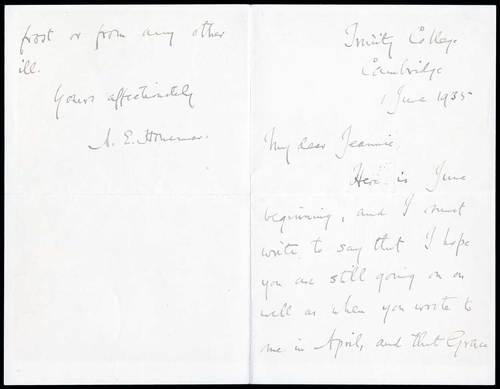 Trinity College
Cambridge
1 June 1935
My dear Jeannie,
Here is June
beginning, and I must
write to say that I hope
you are still going on as
well as when you wrote to
me in April, and that Grace
frost or from any other
ill.
Yours affectionately
A. E. Housman.